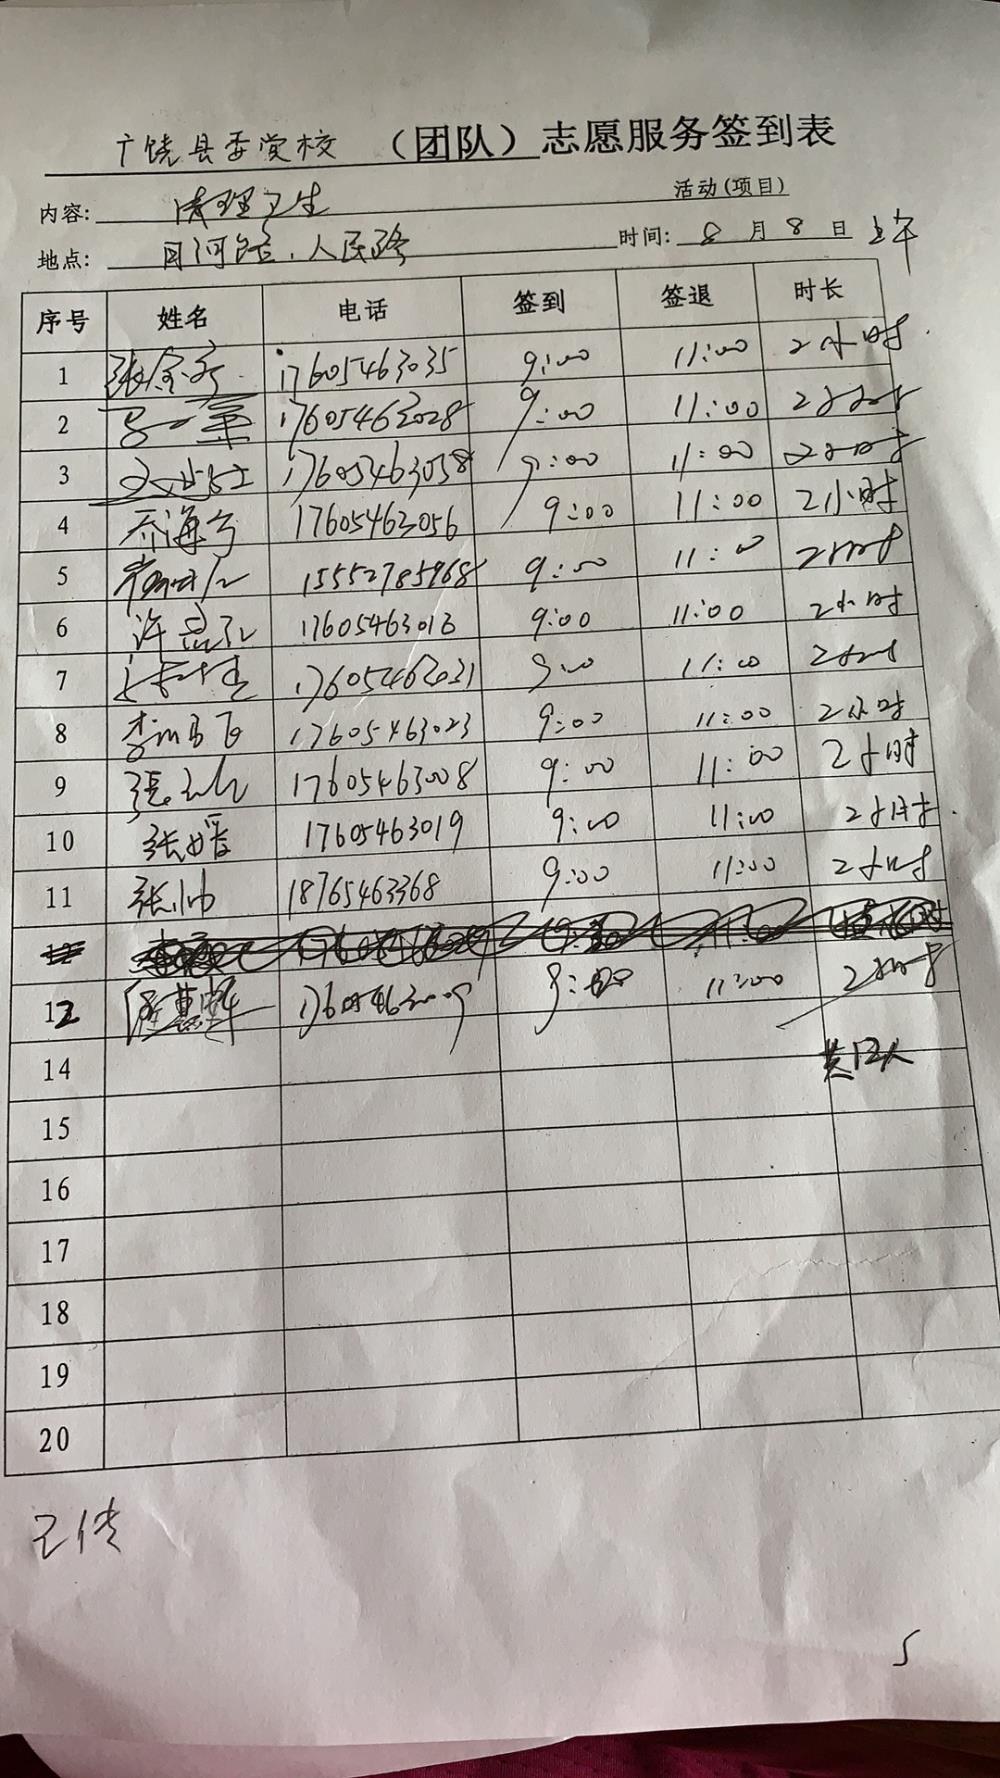 广饶县委党校（团队）志愿服务签到表
内容: 清理卫生 活动(项目)
地点: 月河路、人民路 时间: 8 月 8 日 上午
序号 姓名 电话 签到 签退 时长
1 17605463035 9:00 11:00 2小时
2 17605463028 9:00 11:00 2小时
3 17605463058 9:00 11:00 2小时
4 乔海宁 17605463056 9:00 11:00 2小时
5 15552785968 9:00 11:00 2小时
6 17605463013 9:00 11:00 2小时
7 17605463031 9:00 11:00 2小时
8 17605463023 9:00 11:00 2小时
9 17605463008 9:00 11:00 2小时
10 张媛 17605463019 9:00 11:00 2小时
11 张帅 18765463368 9:00 11:00 2小时
12 17605463009 9:00 11:00 2小时
共12人
14
15
16
17
18
19
20
已传
5